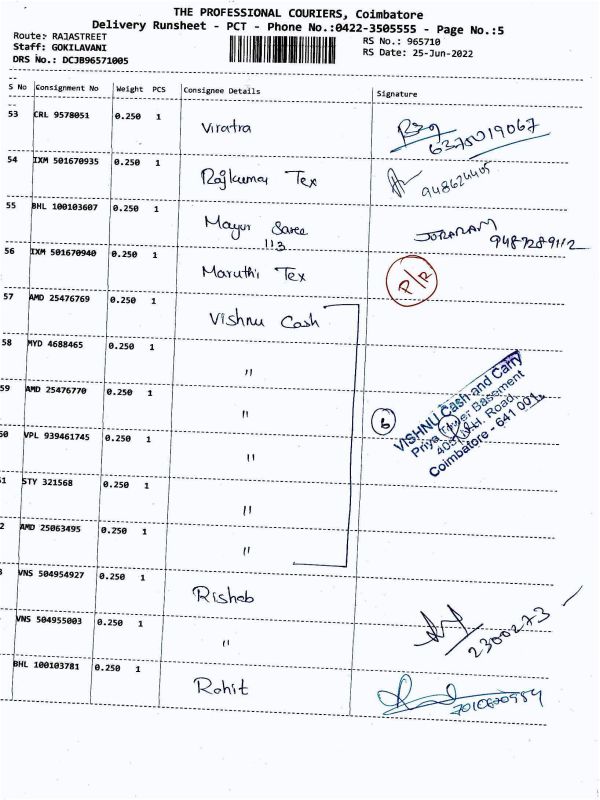 THE PROFESSIONAL COURIERS, Coimbatore
Delivery Runsheet - PCT - Phone No.:0422-3505555 - Page No.:5
Route: RAJASTREET
Staff: GOKILAVANI
DRS No.: DCJB96571005
RS No.: 965710
RS Date: 25-Jun-2022
S No Consignment No Weight PCS Consignee Details Signature
53 CRL 9578051 0.250 1 Viratra
6370019067
54 IXM 501670935 0.250 1 Rajkumar Tex
948624405
55 BHL 100103607 0.250 1 Mayur Saree
113
JORARAM
9487289112
56 IXM 501670940 0.250 1 Maruthi Tex P/R
57 AMD 25476769 0.250 1 Vishnu Cash
58 MYD 4688465 0.250 1 "
59 AMD 25476770 0.250 1 "
6
VISHNU Cash and Carry
Priya Tower Basement
Road,
Coimbatore - 641 001.
0 VPL 939461745 0.250 1 "
1 STY 321568 0.250 1 "
2 AMD 25063495 0.250 1 "
VNS 504954927 0.250 1 Rishab
VNS 504955003 0.250 1 "
2300273
BHL 100103781 0.250 1 Rohit